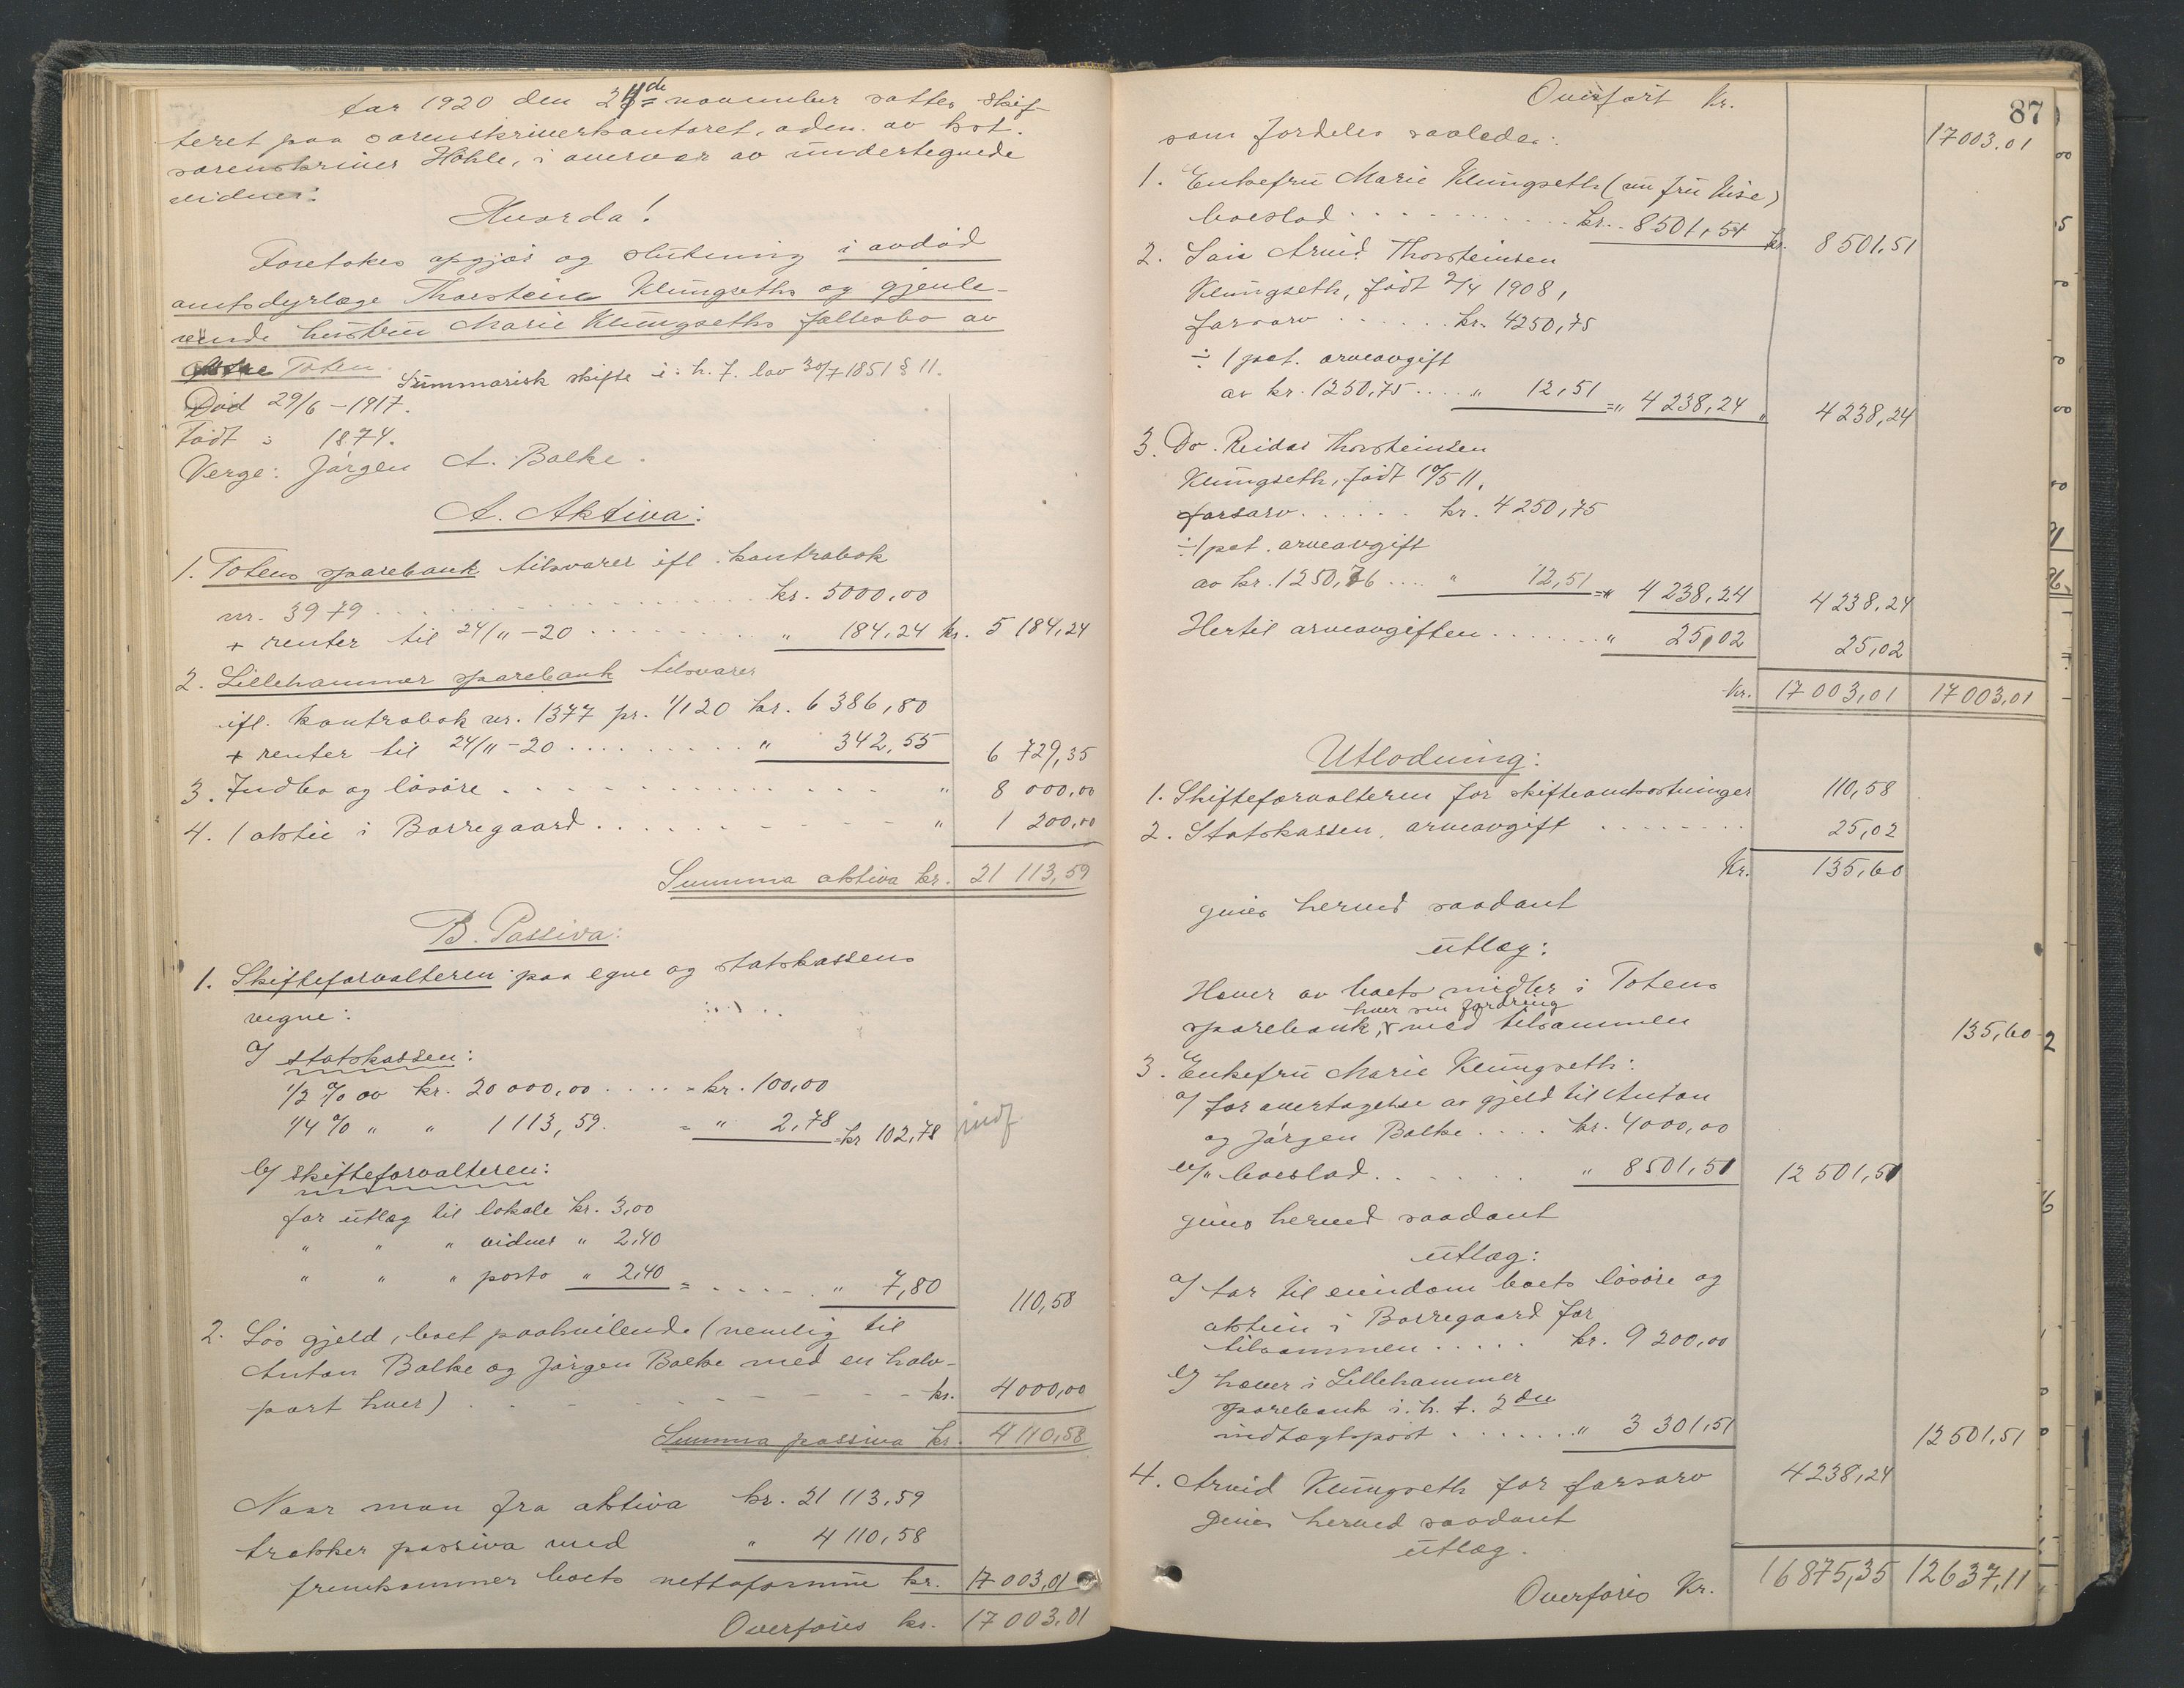 Aar 1920 den 24de november sattes skif-
teret paa sorenskriverkontoret, adm. av kst.
sorenskriver Hohle, i overvær av undertegnede
vidner:
Hvorda!
Foretokes opgjør og slutning i avdød
amtsdyrlæge Thorstein Klüngseths og gjenle-
vende hustru Marie Klüngseths fællesbo av
Toten. Summarisk skifte i. h. t. lov 30/7 1851 § 11.
Død 29/6 - 1917.
Født : 1874.
Verge: Jørgen A. Balke.
A. Aktiva:
1. Totens sparebank tilsvarer ifl. kontrabok
nr. 3979 . . . . kr. 5000,00
+ renter til 24/11 - 20 . . . . " 184,24 kr. 5 184,24
2. Lillehammer sparebank tilsvarer
ifl. kontrabok nr. 1377 pr. 1/1 20 kr. 6 386,80
+ renter til 24/11 - 20 . . . . " 342,55 6 729,35
3. Indbo og løsøre . . . . " 8 000,00
4. 1 aktie i Borregaard . . . . " 1 200,00
Summa aktiva kr. 21 113,59
B. Passiva:
1. Skifteforvalteren paa egne og statskassens
vegne:
a/ statskassen:
1/2 % av kr. 20 000,00 . . . . = kr. 100,00
1/4 % " " 1113,59. = " 2,78 = kr 102,78
b/ skifteforvalteren:
for utlæg til lokale kr. 3,00
" " " vidner " 2,40
" " " porto " 2,40 = . . . . " 7,80 110,58
2. Løs gjeld, boet paahvilende (nemlig til
Anton Balke og Jørgen Balke med en halv-
part hver) . . . . kr. 4000,00
Summa passiva kr. 4 110,58
Naar man fra aktiva kr. 21 113,59
trækker passiva med " 4 110,58
fremkommer boets nettoformue kr. 17 003,01
Overføres kr. 17 003,01
87
Overført Kr. 17003.01
som fordeles saaledes:
1. Enkefru Marie Klüngseth (nu fru Kise)
boeslod . . . . kr. 8501,51 kr. 8501,51
2. Søn Arvid Thorsteinsen
Klüngseth, født 2/4 1908,
farsarv . . . . kr. 4250,75
÷ 1 pct. arveavgift
av kr. 1250,75 . . . . " 12,51 = " 4 238,24 " 4238,24
3. Do. Reidar Thorsteinsen
Klüngseth, født 10/5 11.
farsarv . . . . kr. 4250,75
÷ 1 pct. arveavgift
av kr. 1250,76 . . . . " 12,51 = " 4 238,24 4238,24
Hertil arveavgiften . . . . " 25,02 25,02
Kr. 17 003,01 17 003,01
Utlodning:
1. Skifteforvalteren for skifteomkostninger 110,58
2. Statskassen, arveavgift . . . . 25,02
Kr. 135,60
gives herved saadant
utlæg:
Hæver av boets midler i Totens
hver sin fordring
sparebank, med tilsammen 135,60
3. Enkefru Marie Klüngseth:
a/ for overtagelse av gjeld til Anton
og Jørgen Balke . . . . kr. 4000,00
b/ " boeslod . . . . " 8501,51 12 501,51
gives herved saadant
utlæg:
a/ tar til eiendom boets løsøre og
aktien i Borregaard for
tilsammen . . . . kr. 9 200,00
b/ hæver i Lillehammer
sparebank i. h. t. 2den
indtægtspost . . . . " 3 301,51 12501,51
4. Arvid Klüngseth for farsarv 4238,24
gives herved saadant
utlæg.
Overføres Kr. 16875,35 12637,11